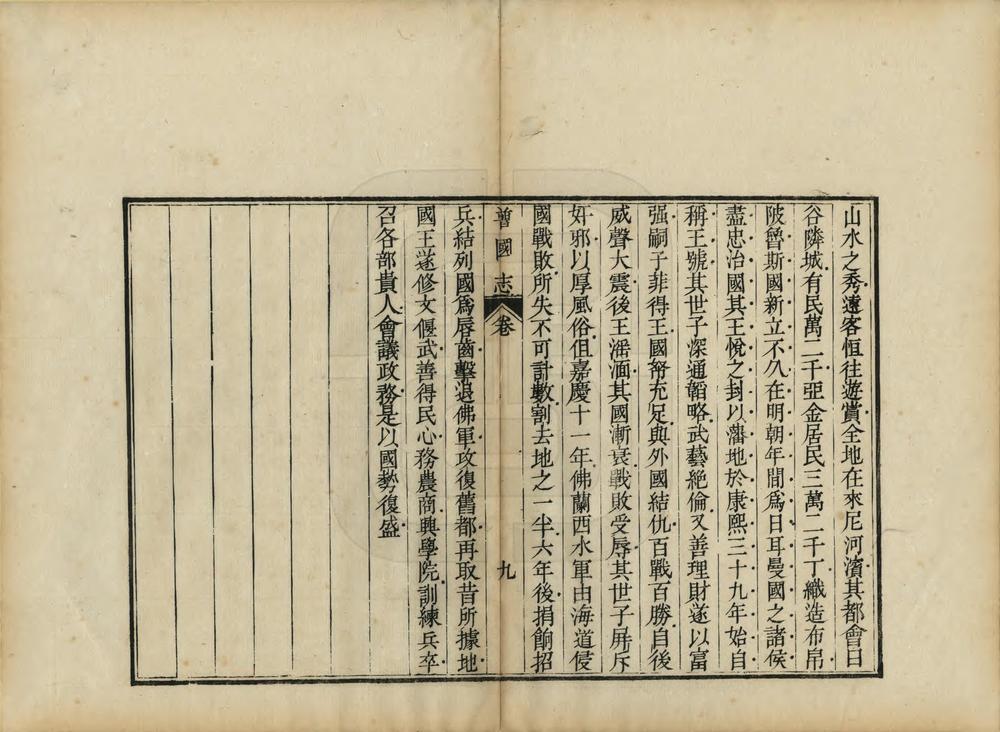 山水之秀遠客恒往遊賞全地在來尼河濱其都會曰
谷隣城有民萬二千亞金居民三萬二千丁織造布帛
陂魯斯國新立不久在明朝年間爲日耳曼國之諸侯
盡忠治國其王悅之封以藩地於康熙三十九年始自
稱王號其世子深通韜略武藝絶倫又善理財遂以富
强嗣子菲得王國帑充足與外國結仇百戰百勝自後
威聲大震後王潘湎其國漸衰戰敗受辱其世子屏斥
奸邪以厚風俗但嘉慶十一年佛蘭西水軍由海道侵
國戰敗所失不可計數割去地之一半六年後捐餉招
普國志 卷 九
兵結列國爲唇齒擊退佛軍攻復舊都再取昔所據地
國王遂修文偃武善得民心務農商興學院訓練兵卒
召各部貴人會議政務是以國勢復盛